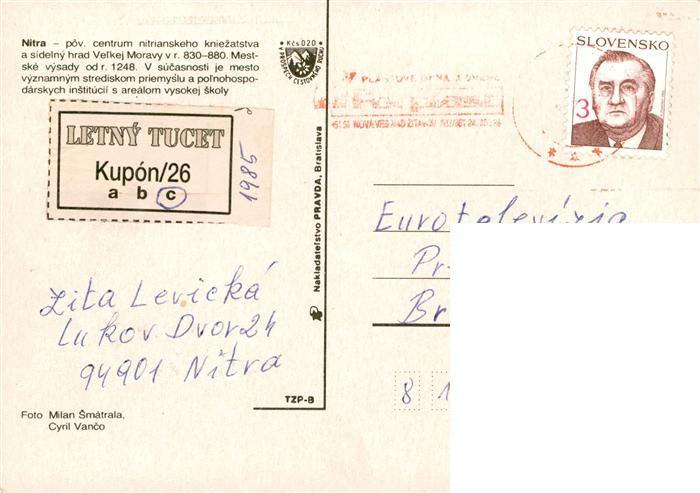 Nitra – pôv. centrum nitrianskeho kniežatstva
a sídelný hrad Veľkej Moravy v r. 830–880. Mest-
ské výsady od r. 1248. V súčasnosti je mesto
významným strediskom priemyslu a poľnohospo-
dárskych inštitúcií s areálom vysokej školy
Kčs 020
SLOVENSKO
3
LETNÝ TUCET
Kupón/26
a b c
1985
Nakladateľstvo PRAVDA, Bratislava
Eurotelevízia
Pr
Br
8 1
Zita Levická
Lukov Dvor 2h
94901 Nitra
TZP-B
Foto Milan Šmátrala,
Cyril Vančo